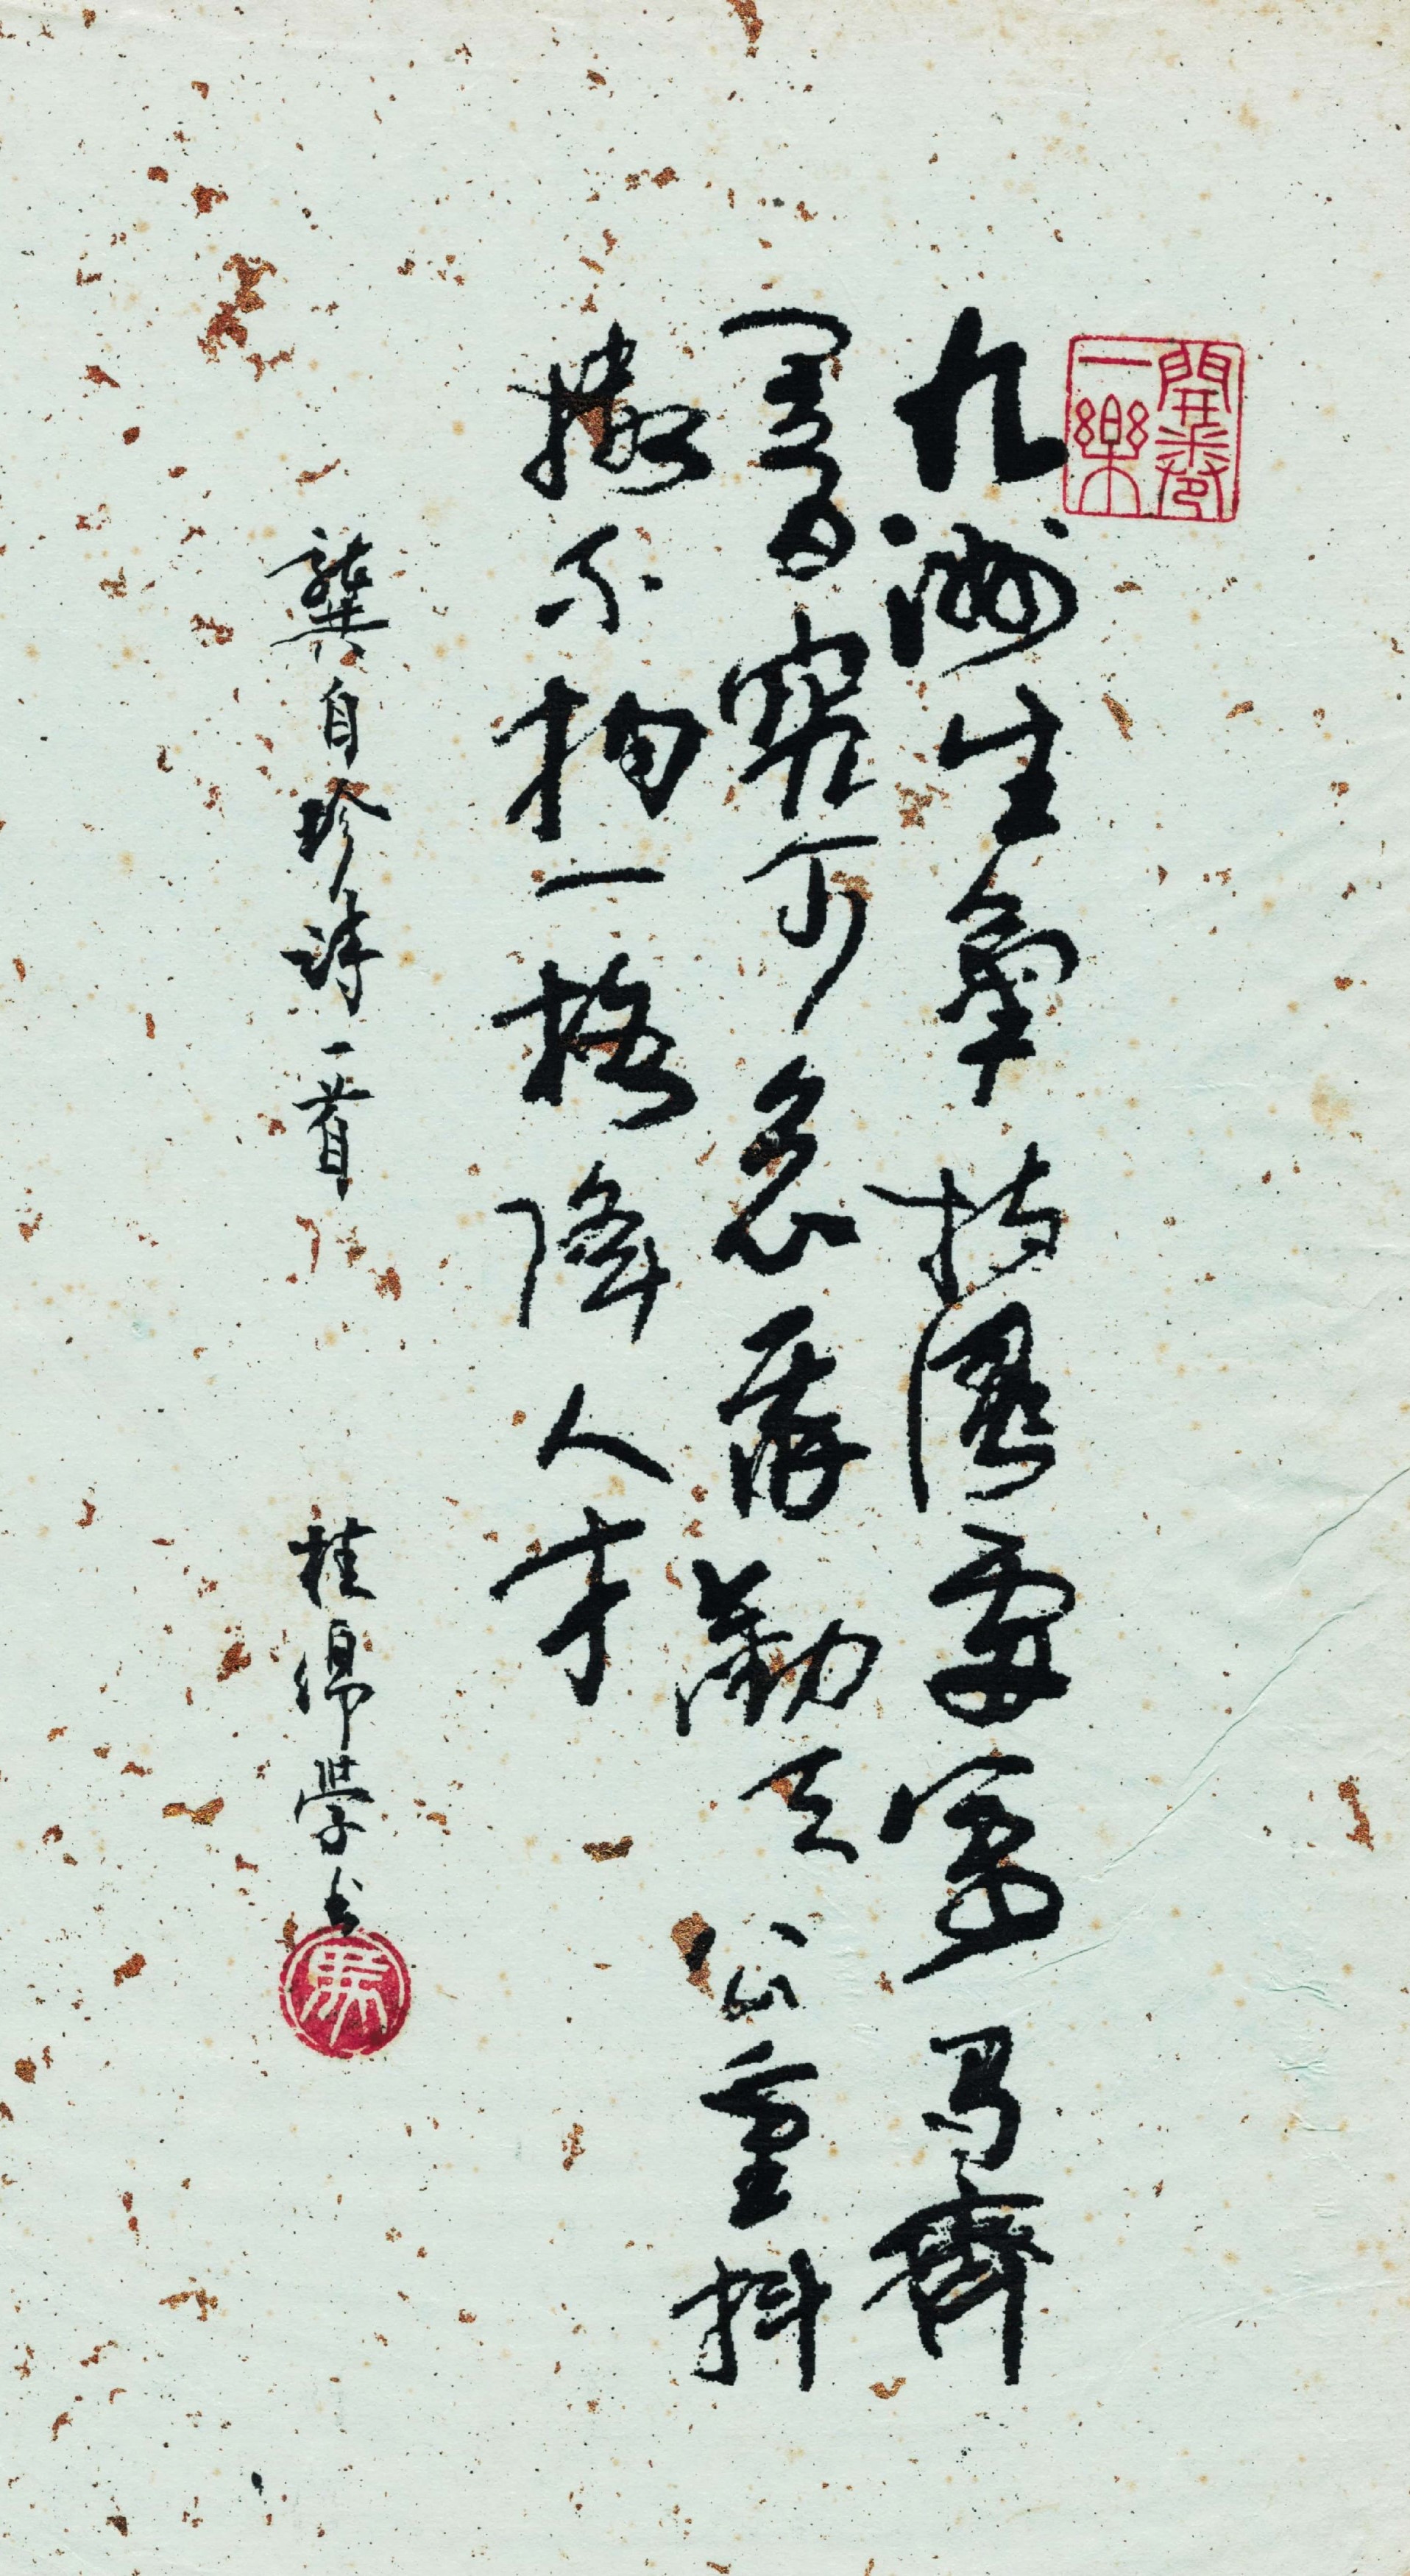 開卷一樂
九洲生氣持風雷萬馬齊
闇究可哀我勸天公重抖
擻不拘一格降人才
龔自珍詩一首 桂學書